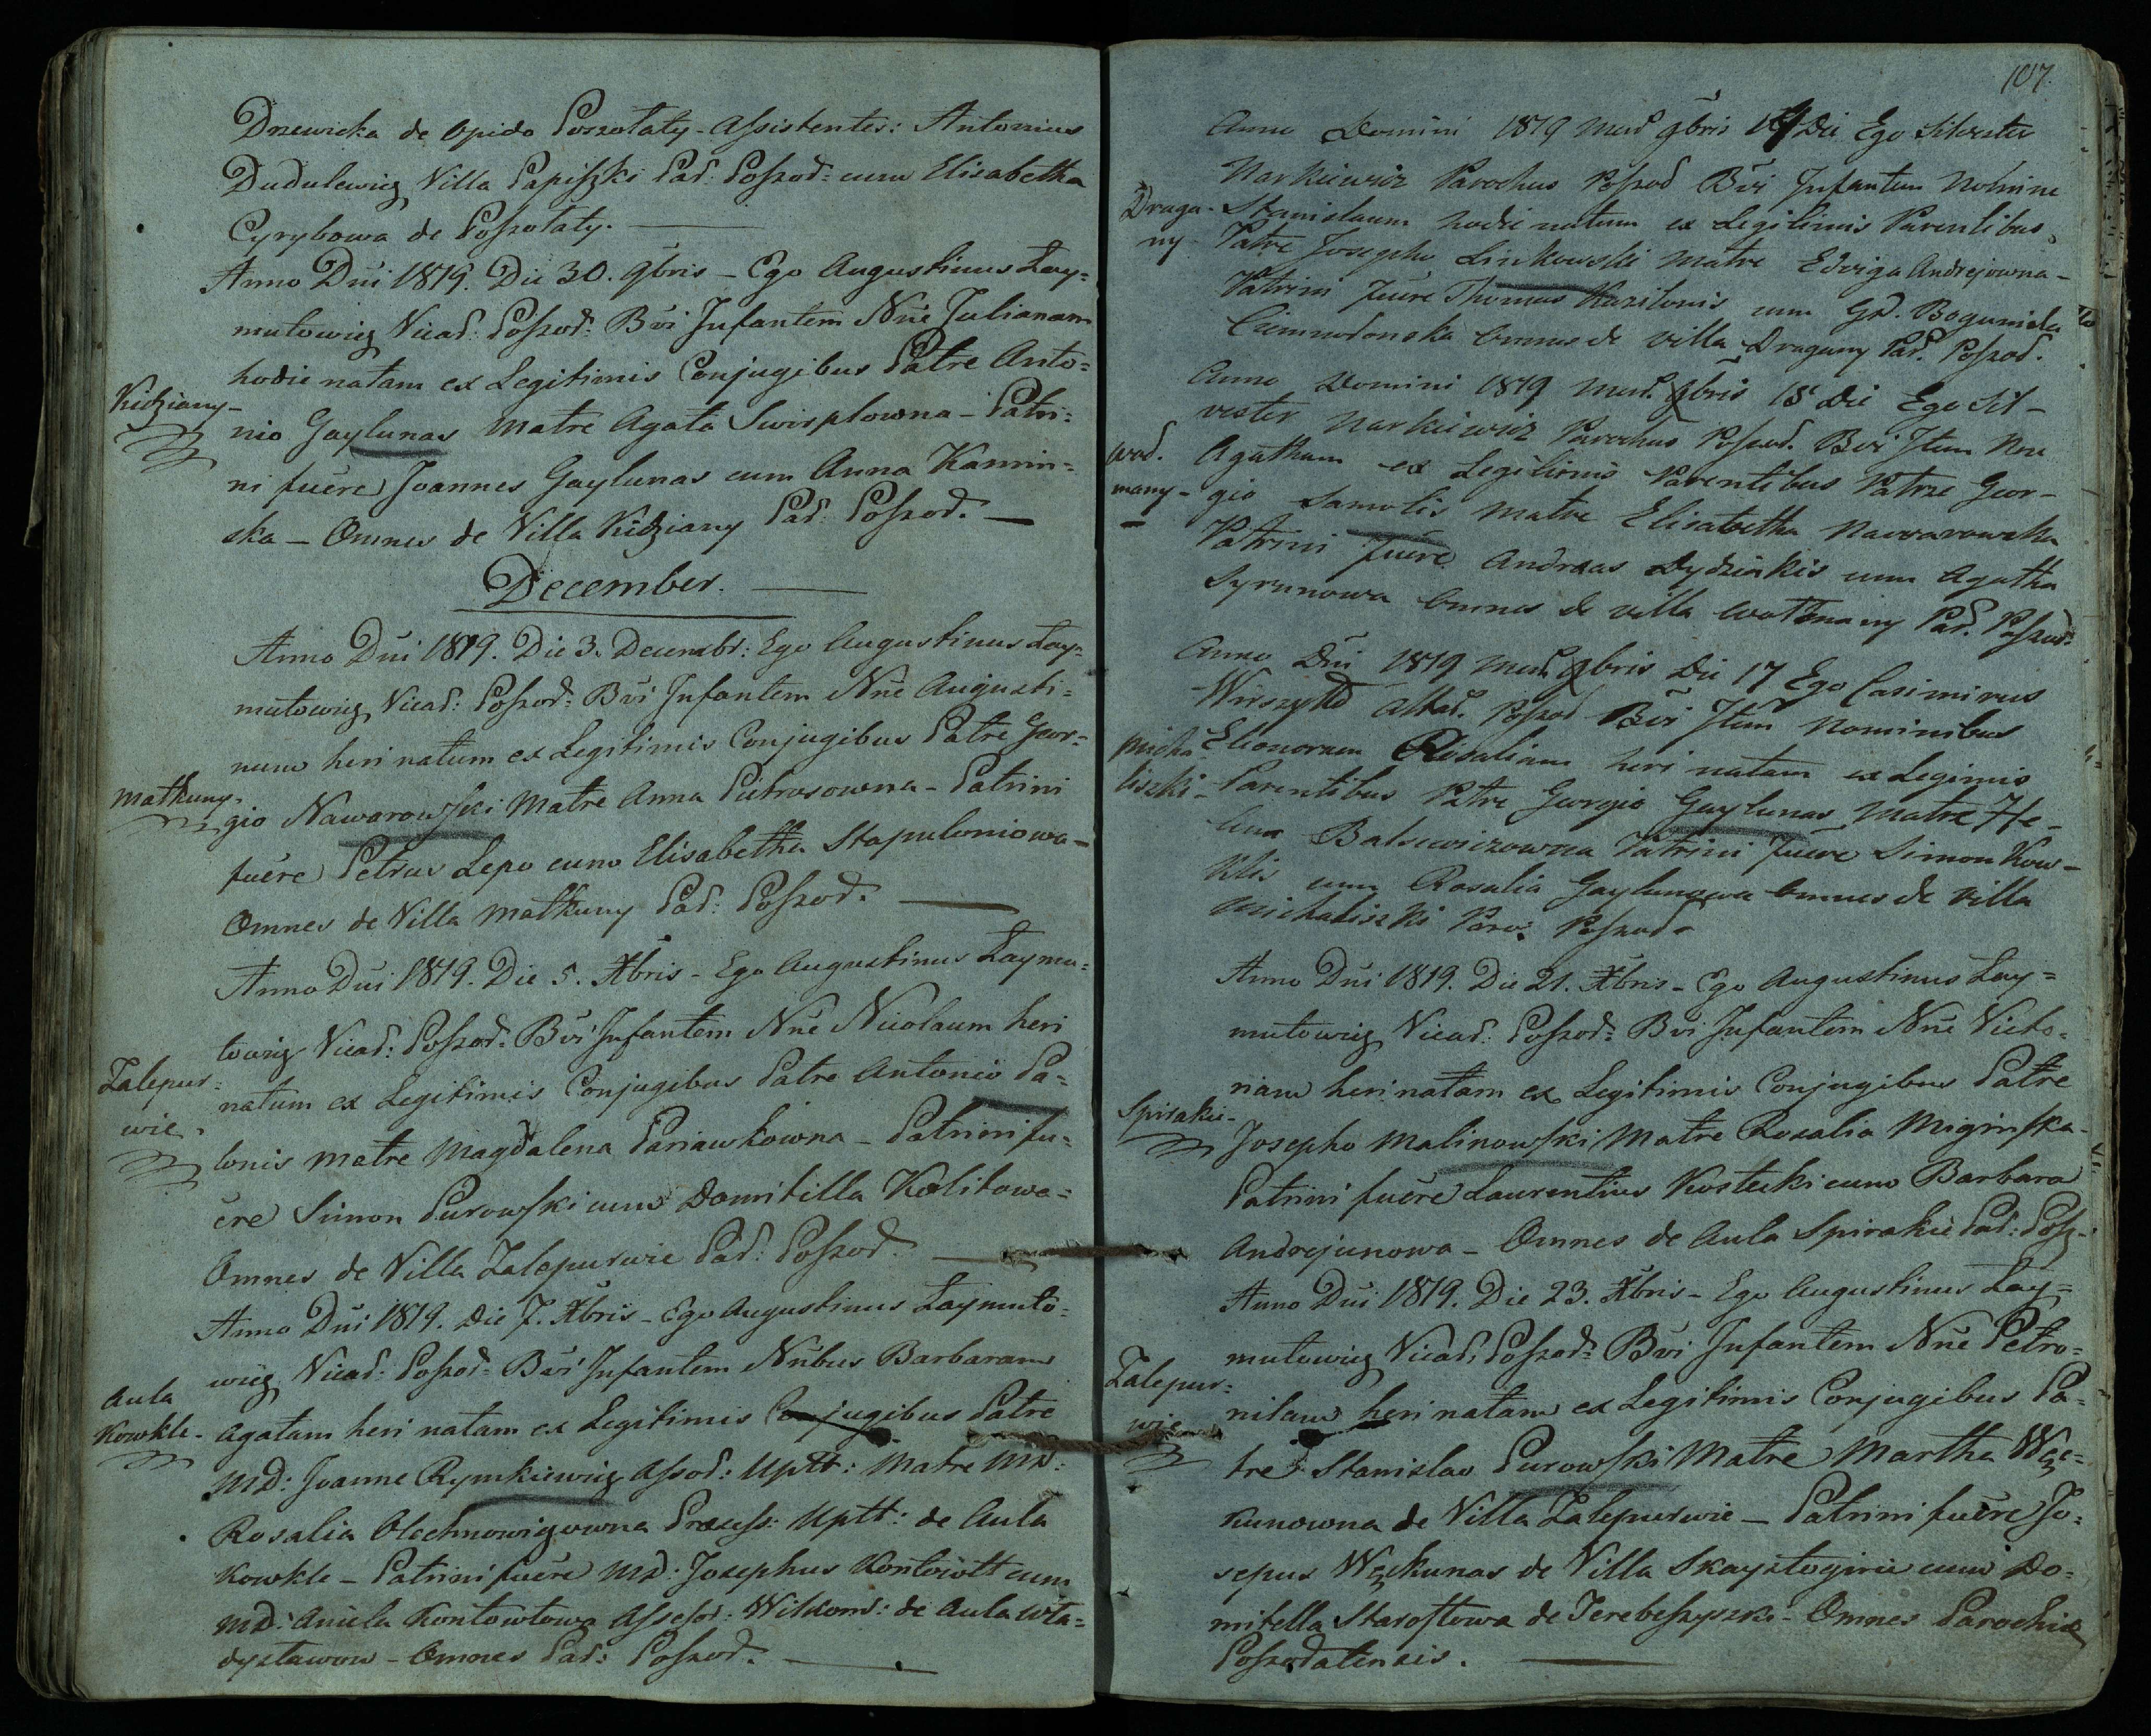 Drzewicka de Opido Poszołaty - Assistentes: Antonius
Dudulewicz Villa Papiszki Par: Poszod: cum Elisabetha
Cyrybowa de Poszołaty.
Anno Dni 1819. Die 30. 9bris - Ego Augustinus Łay=
mutowicz Vicar: Poszod: Bvi Infantem Nne Julianam
hodie natam ex Legitimis Conjugibus Patre Anto=
Kidziany-
nio Gaylunas Matre Agata Swirplowna - Patri=
ni fuêre Joannes Gaylunas cum Anna Kamin=
ska - Omnes de Villa Kidziany Par: Poszod.
December.
Anno Dni 1819. Die 3. Decembr: Ego Augustinus Łay=
mutowicz Vicar: Poszod: Bvi Infantem Nne Augusti=
num heri natum ex Legitimis Conjugibus Patre Geor=
Matkuny-
gio Nawarowski Matre Anna Pietrasowna - Patrini
fuêre Petrus Lepo cum Elisabetha Stapuloniowa -
Omnes de Villa Matkuny Par: Poszod.
Anno Dni 1819. Die 5. Xbris - Ego Augustinus Łaymu=
towicz Vicar: Poszod: Bvi Infantem Nne Nicolaum heri
Zalepur=
wie.
natum ex Legitimis Conjugibus Patre Antonio Pa=
lonis Matre Magdalena Paniawkowna - Patrini fu=
êre Simon Purowski cum Domitilla Kalitowa=
Omnes de Villa Zalepurwie Par: Poszod.
Anno Dni 1819. Die 7. Xbris - Ego Augustinus Łaymuto=
wicz Vicar: Poszod: Bvi Infantem Nnbus Barbaram
Aula
Kowkle-
Agatam heri natam ex Legitimis Conjugibus Patre
MD: Joanne Rymkiewicz Assod: Uptt: Matre MD:
Rosalia Olechnowiczowna Præsess: Uptt: de Aula
Kowkle - Patrini fuêre MD: Josephus Kontowtt cum
MD: Aniela Kontowtowa Assesor: Wilkom: de Aula Wła=
dysławow - Omnes Par: Poszod.
107.
Anno Domini 1819 Mens 9bris Die Ego Silvester
Narkiewicz Parochus Poszod Bvi Infantem Nomine
Draga-
ny-
Stanislaum hodie natum ex Legitimis Parentibus,
Patre Josepho Linkowski Matre Edviga Andrejowna -
Patrini fuere Thomas Kazilonis cum GD. Bogumila
Ciemnolonska Omnes de villa Dragany Par. Poszod.
Anno Domini 1819 Mens. Xbris 15 Die Ego Sil-
vester Narkiewicz Parochus Poszod. Bvi Jtem Nne
Wod.
many-
Agatham ex Legitimis Parentibus Patre Geor-
gio Samolis Matre Elisabetha Nawarowska
Patrini fuere Andreas Dydzinkis cum Agatha
Syrunowa Omnes de villa Wotmany Par. Poszod.
Anno Dni 1819 Mens Xbris Die 17 Ego Casimirus
Wirszyłło Altar. Poszod Bvi Jtem Nominibus
Micha
liszki-
Elionoram Rosaliam heri natam ex Legimis
Parentibus Patre Georgio Gaylunas Matre He-
lena Balsewiczowna Patrini fuere Simon Kow-
klis cum Rosalia Gaylunowa Omnes de villa
Michaliszki Paro: Poszod.
Anno Dni 1819. Die 21. Xbris - Ego Augustinus Łay=
mutowicz Vicar: Poszod: Bvi Infantem Nne Victo=
riam heri natam ex Legitimis Conjugibus Patre
Spirakie-
Josepho Malinowski Matre Rozalia Miginska -
Patrini fuêre Laurentius Kostecki cum Barbara
Andrejunowa - Omnes de Aula Spirakie Par: Posz-
Anno Dni 1819. Die 23. Xbris - Ego Augustinus Łay=
mutowicz Vicar: Poszod: Bvi Infantem Nne Petro=
Zalepur=
wie
nilam heri natam ex Legitimis Conjugibus Pa=
tre Stanislao Purowski Matre Martha Węc=
kunowna de Villa Zalepurwie - Patrini fuêre Jo=
sepus Węckunas de Villa Skaystogirie cum Do=
mitella Starostowa de Jerebeszyszki - Omnes Parochiæ
Poszodatensis.